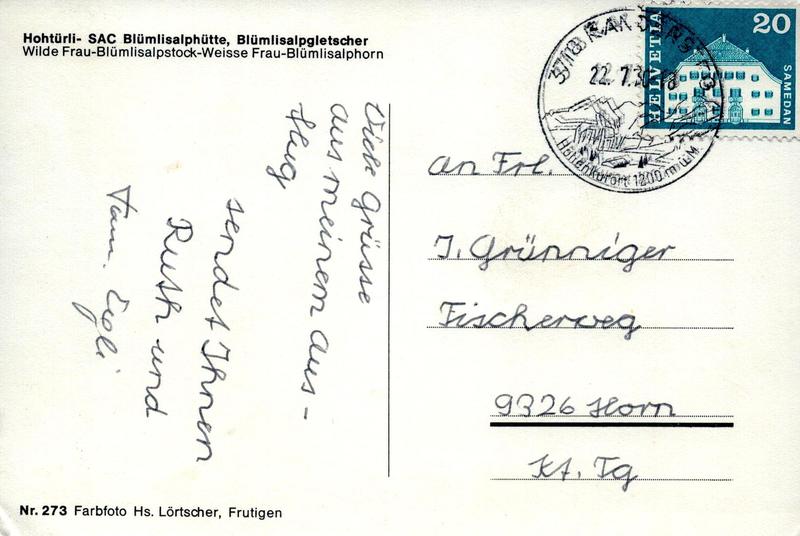 Hohtürli- SAC Blümlisalphütte, Blümlisalpgletscher
Wilde Frau-Blümlisalpstock-Weisse Frau-Blümlisalphorn
Viele Grüsse
aus meinem Aus-
flug
sendet Ihnen
Ruth und
Fam. Egli
HELVETIA
20
SAMEDAN
3718 KANDERSTEG
22. 7.
Höhenkurort 1200 m ü.M.
An Frl.
J. Grünniger
Fischerweg
9326 Horn
Kt. Tg
Nr. 273 Farbfoto Hs. Lörtscher, Frutigen